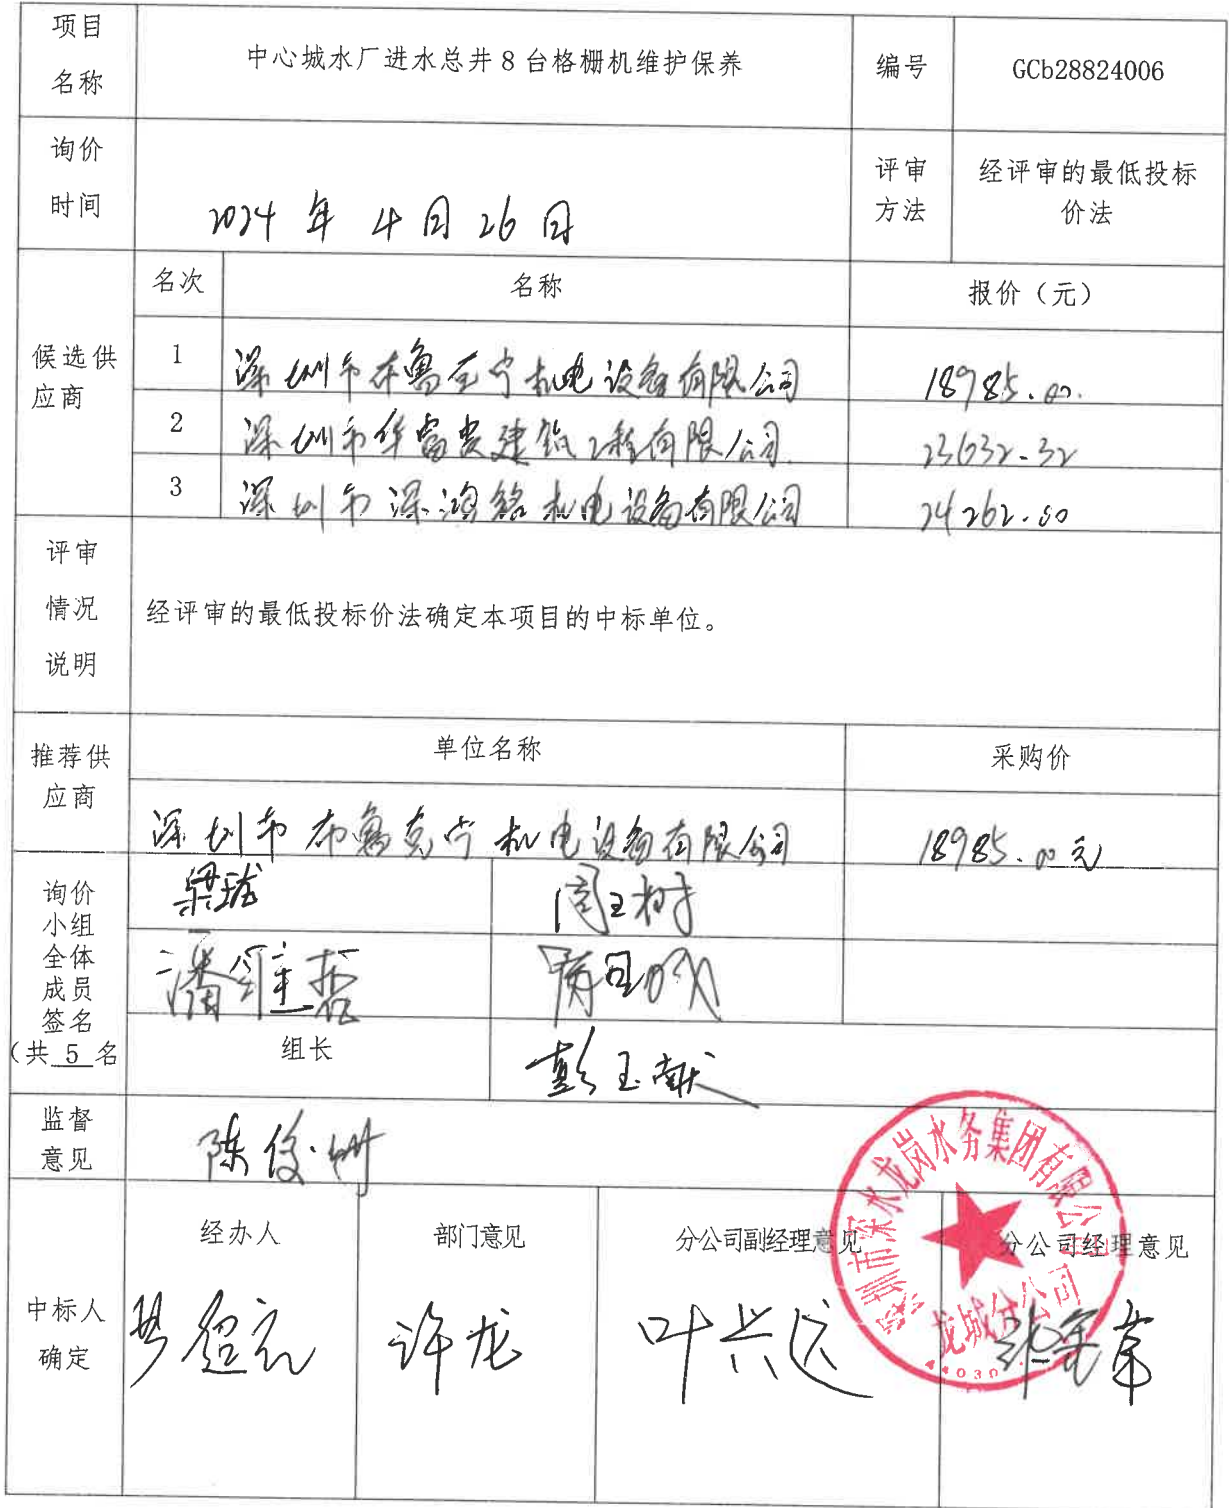 项目
名称
中心城水厂进水总井8台格栅机维护保养
编号
GCb28824006
询价
时间
2024 年 4 月 26 日
评审
方法
经评审的最低投标
价法
候选供
应商
名次
名称
报价（元）
1
深圳市布鲁克宁机电设备有限公司
18985.00.
2
深圳市华富贵建筑工程有限公司
23632.32
3
深圳市深鸿铭机电设备有限公司
24262.00
评审
情况
说明
经评审的最低投标价法确定本项目的中标单位。
推荐供
应商
单位名称
采购价
深圳市布鲁克宁机电设备有限公司
18985.00元
询价
小组
全体
成员
签名
（共 5 名
梁珑
闫玉树
组长
彭玉献
监督
意见
中标人
确定
经办人
部门意见
分公司副经理意见
分公司经理意见
许龙
深圳市深水龙岗水务集团有限公司
龙城分公司
44030